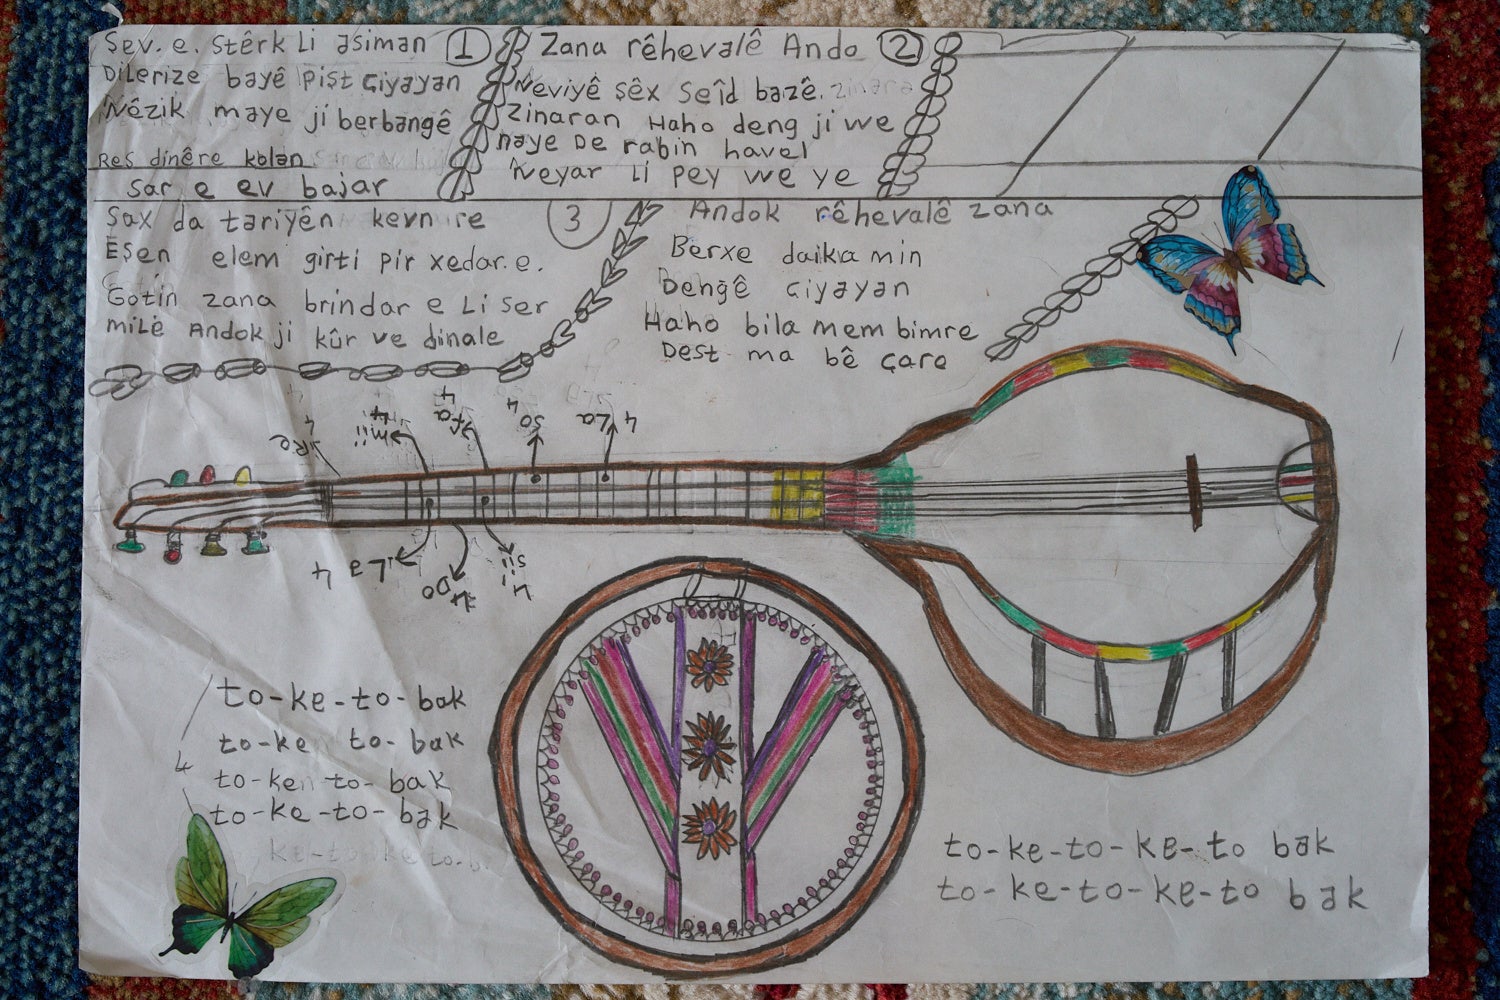 Şev. e. stêrk Li asiman 1
Dilerize bayê pişt çiyayan
Nêzik maye ji berbangê
Reş dinêre kolan
sar e ev bajar
Zana rêhevalê Ando 2
Neviyê Şêx Seîd bazê.
Zinaran Haho deng ji we
naye De rabin havel
Neyar Li pey we ye
Şax da tariyên kevn re 3
Eşen elem girti pir xedar. e.
Gotin zana brindar e Li ser
milê Andok ji kûr ve dinale
Andok rêhevalê zana
Berxe daika min
Dengê çiyayan
Haho bila mem bimre
Dest ma bê çare
Re 4
mii 4
fa 4
so 4
La 4
La 4
Do 4
sii 4
to-ke-to-bak
to-ke to-bak
to-ken to-bak
to-ke-to-bak
4
to-ke-to-ke-to bak
to-ke-to-ke-to bak